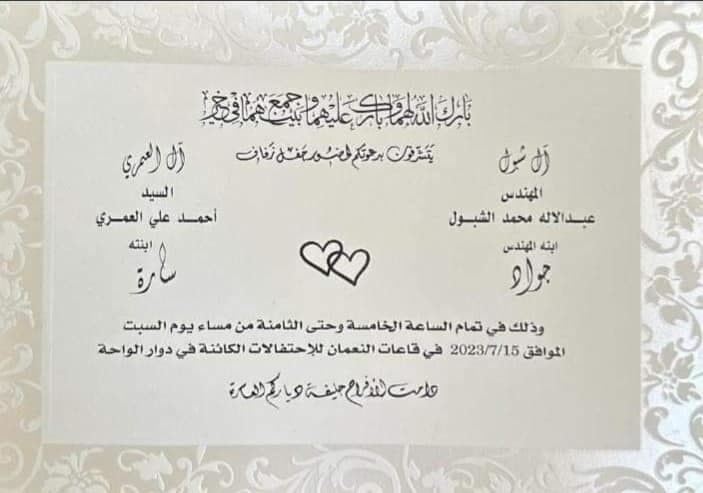 بارك الله لهما وبارك عليهما وجمع بينهما في خير
يتشرفون بدعوتكم لحضور حفل زفاف
آل شبول
المهندس
عبدالاله محمد الشبول
ابنه المهندس
جواد
آل العمري
السيد
أحمد علي العمري
ابنته
سارة
وذلك في تمام الساعة الخامسة وحتى الثامنة من مساء يوم السبت
الموافق 2023/7/15 في قاعات النعمان للإحتفالات الكائنة في دوار الواحة
دامت الأفراح حليفة دياركم العامرة